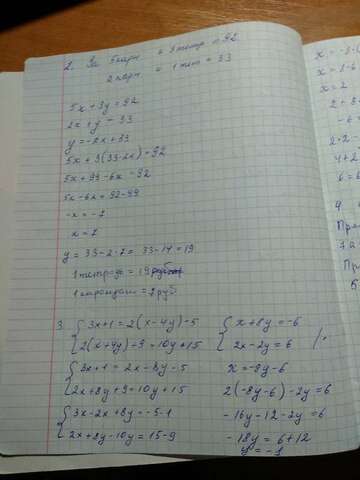 2. За 5 кар = 3 тетр = 92
2 кар = 1 тет = 33
5x + 3y = 92
2x + y = 33
y = -2x + 33
5x + 3(33-2x) = 92
5x + 99 - 6x = 92
5x - 6x = 92 - 99
-x = -7
x = 7
y = 33 - 2·7 = 33 - 14 = 19
1 тетрадь = 19 руб
1 карандаш = 7 руб
3. { 3x + 1 = 2(x - 4y) - 5
2(x + 4y) - 9 = 10y + 15
3x + 1 = 2x - 8y - 5
2x + 8y + 9 = 10y + 15
3x - 2x + 8y = -5 - 1
2x + 8y - 10y = 15 - 9
{ x + 8y = -6
2x - 2y = 6
x = -8y - 6
2(-8y - 6) - 2y = 6
-16y - 12 - 2y = 6
-18y = 6 + 12
y = -1
x = 2
4.